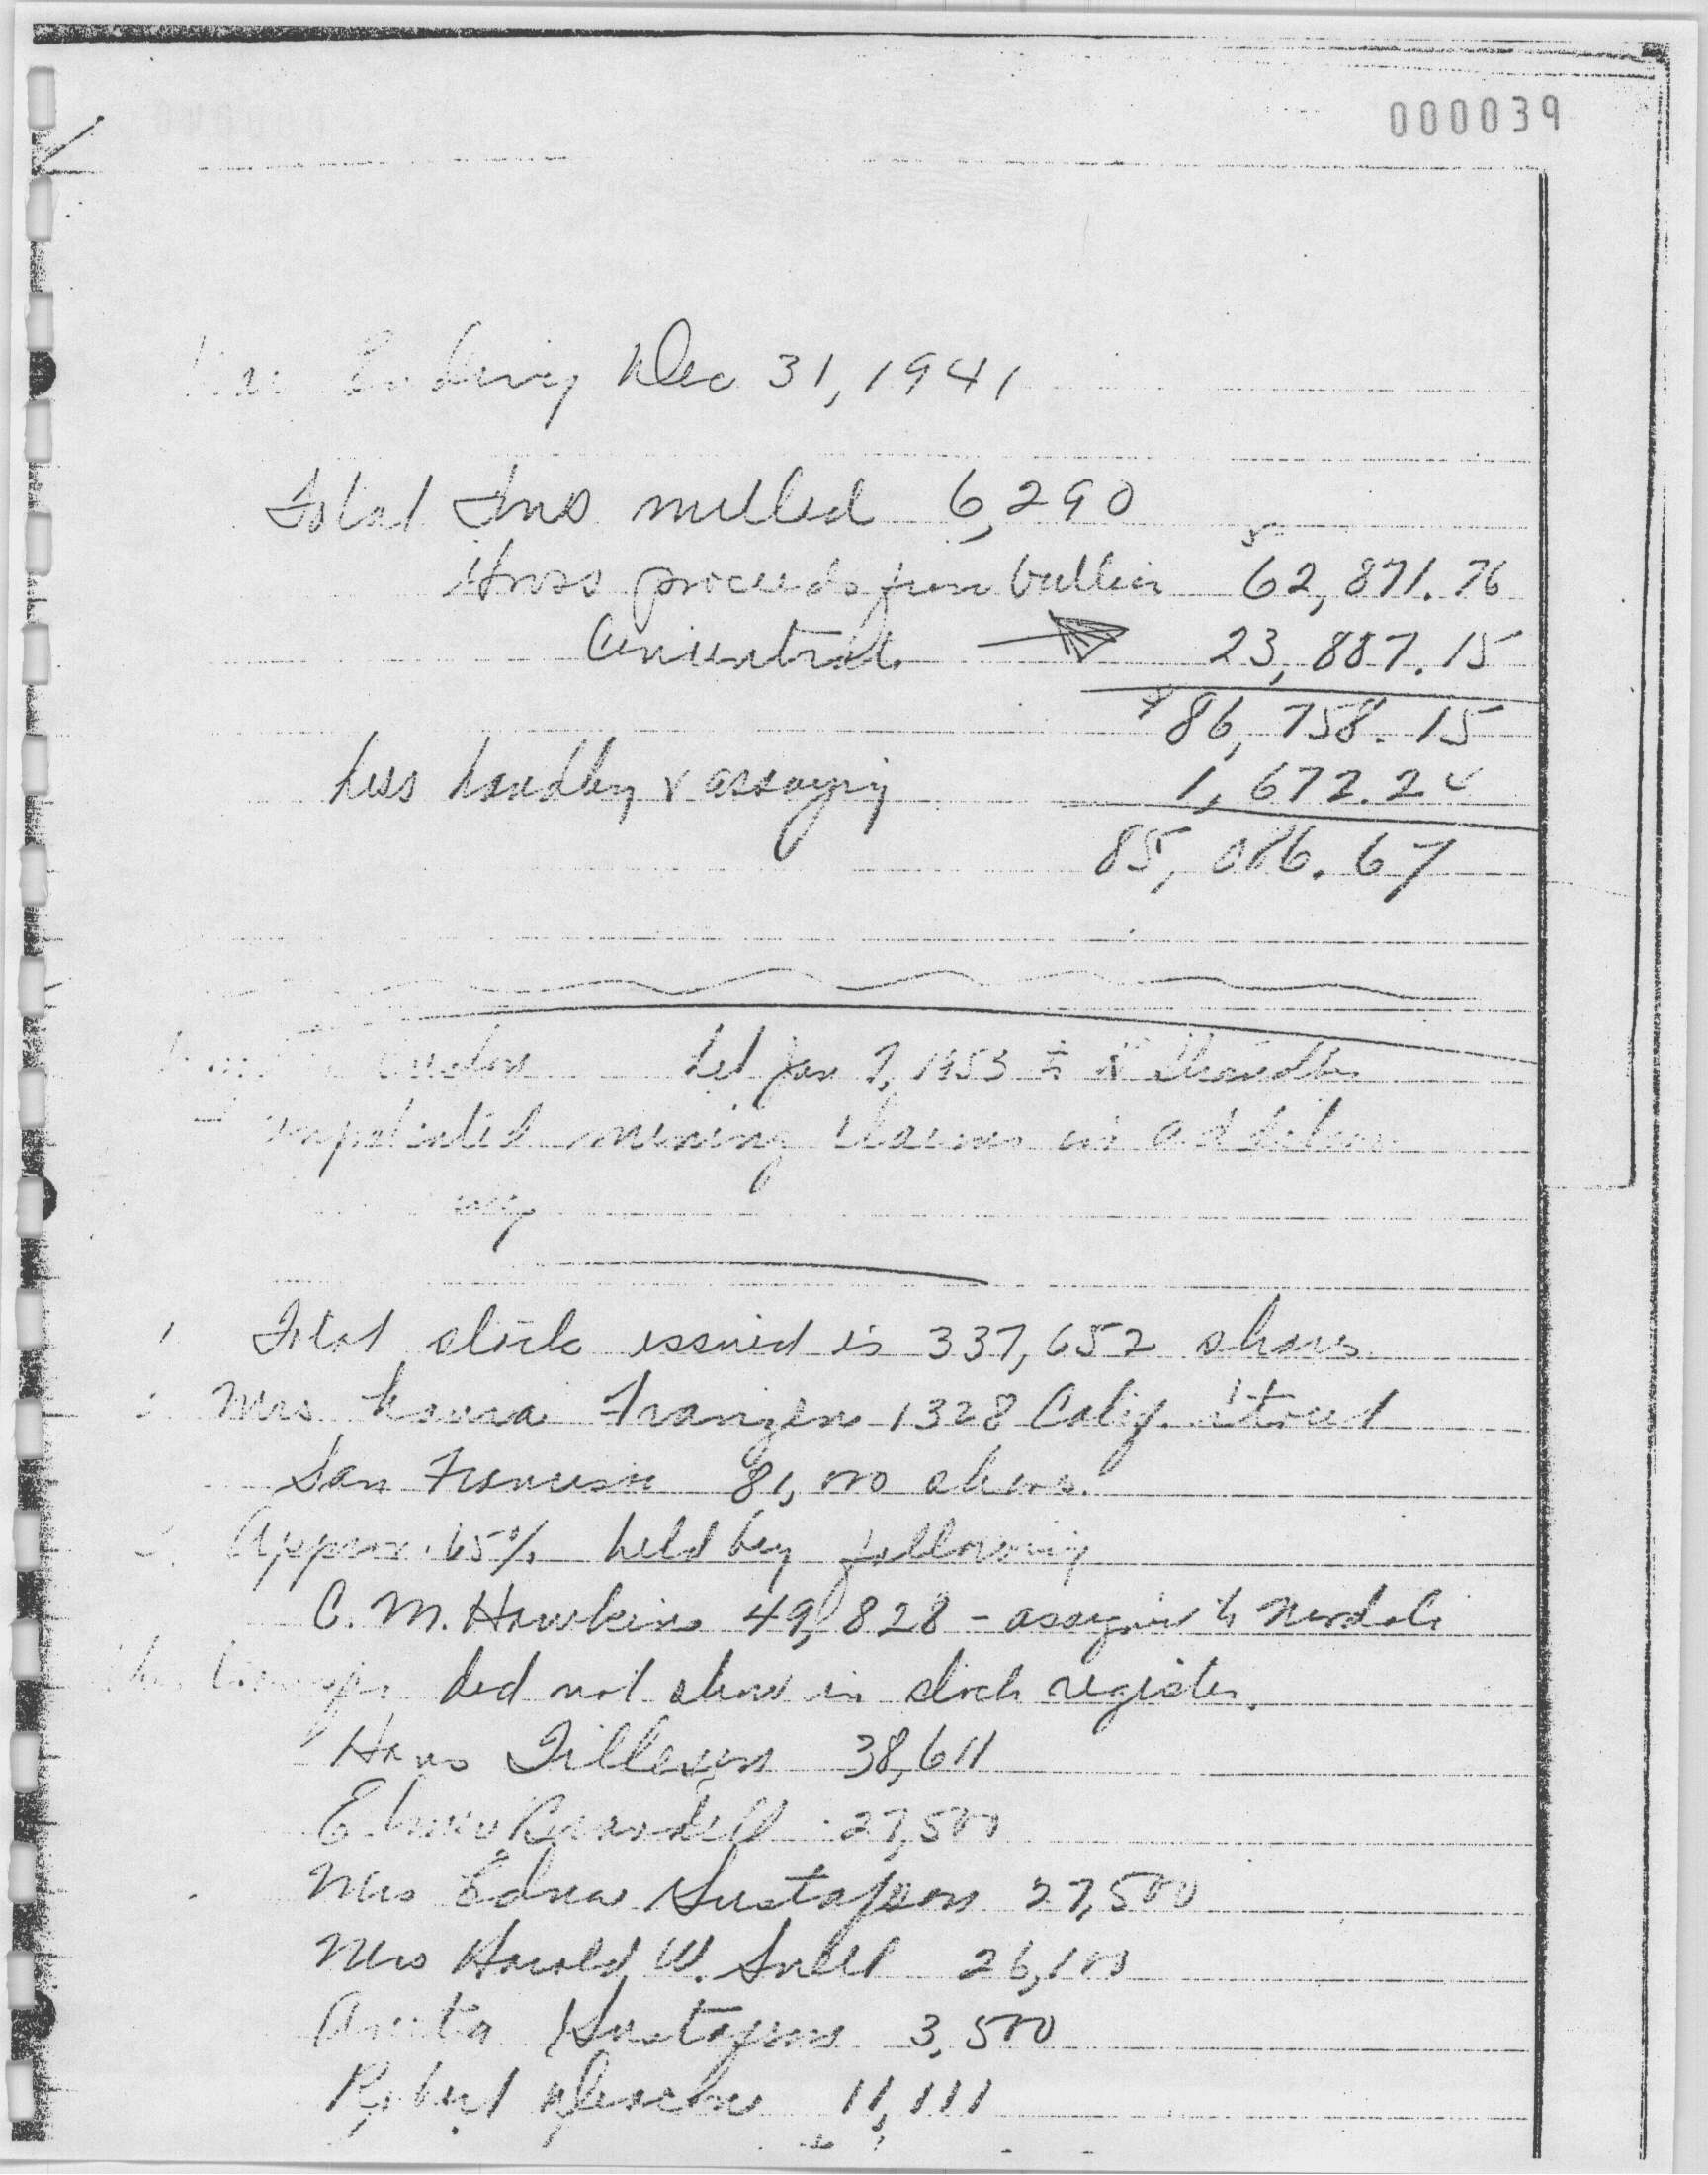 000039
Ending Dec 31, 1941
Total Tons milled 6,290
Gross proceeds from bullion 62,871.76
Concentrate 23,887.15
$86,758.15
Less handling & assaying 1,672.24
85,086.67
let Jan 7, 1953 to
unpatented mining claims in addition
1 Total stock issued is 337,652 shares
Mrs Laura Franzen 1328 Calif. Street
San Francisco 81,000 shares.
Approx. 65% held by following
C. M. Hawkins 49,828 - assigned to
did not show in stock register.
Hans Tilleson 38,611
27,500
Mrs Edna Gustafson 27,500
Mrs Harold W. Snell 26,100
Anita Gustafson 3,500
Robert 11,111